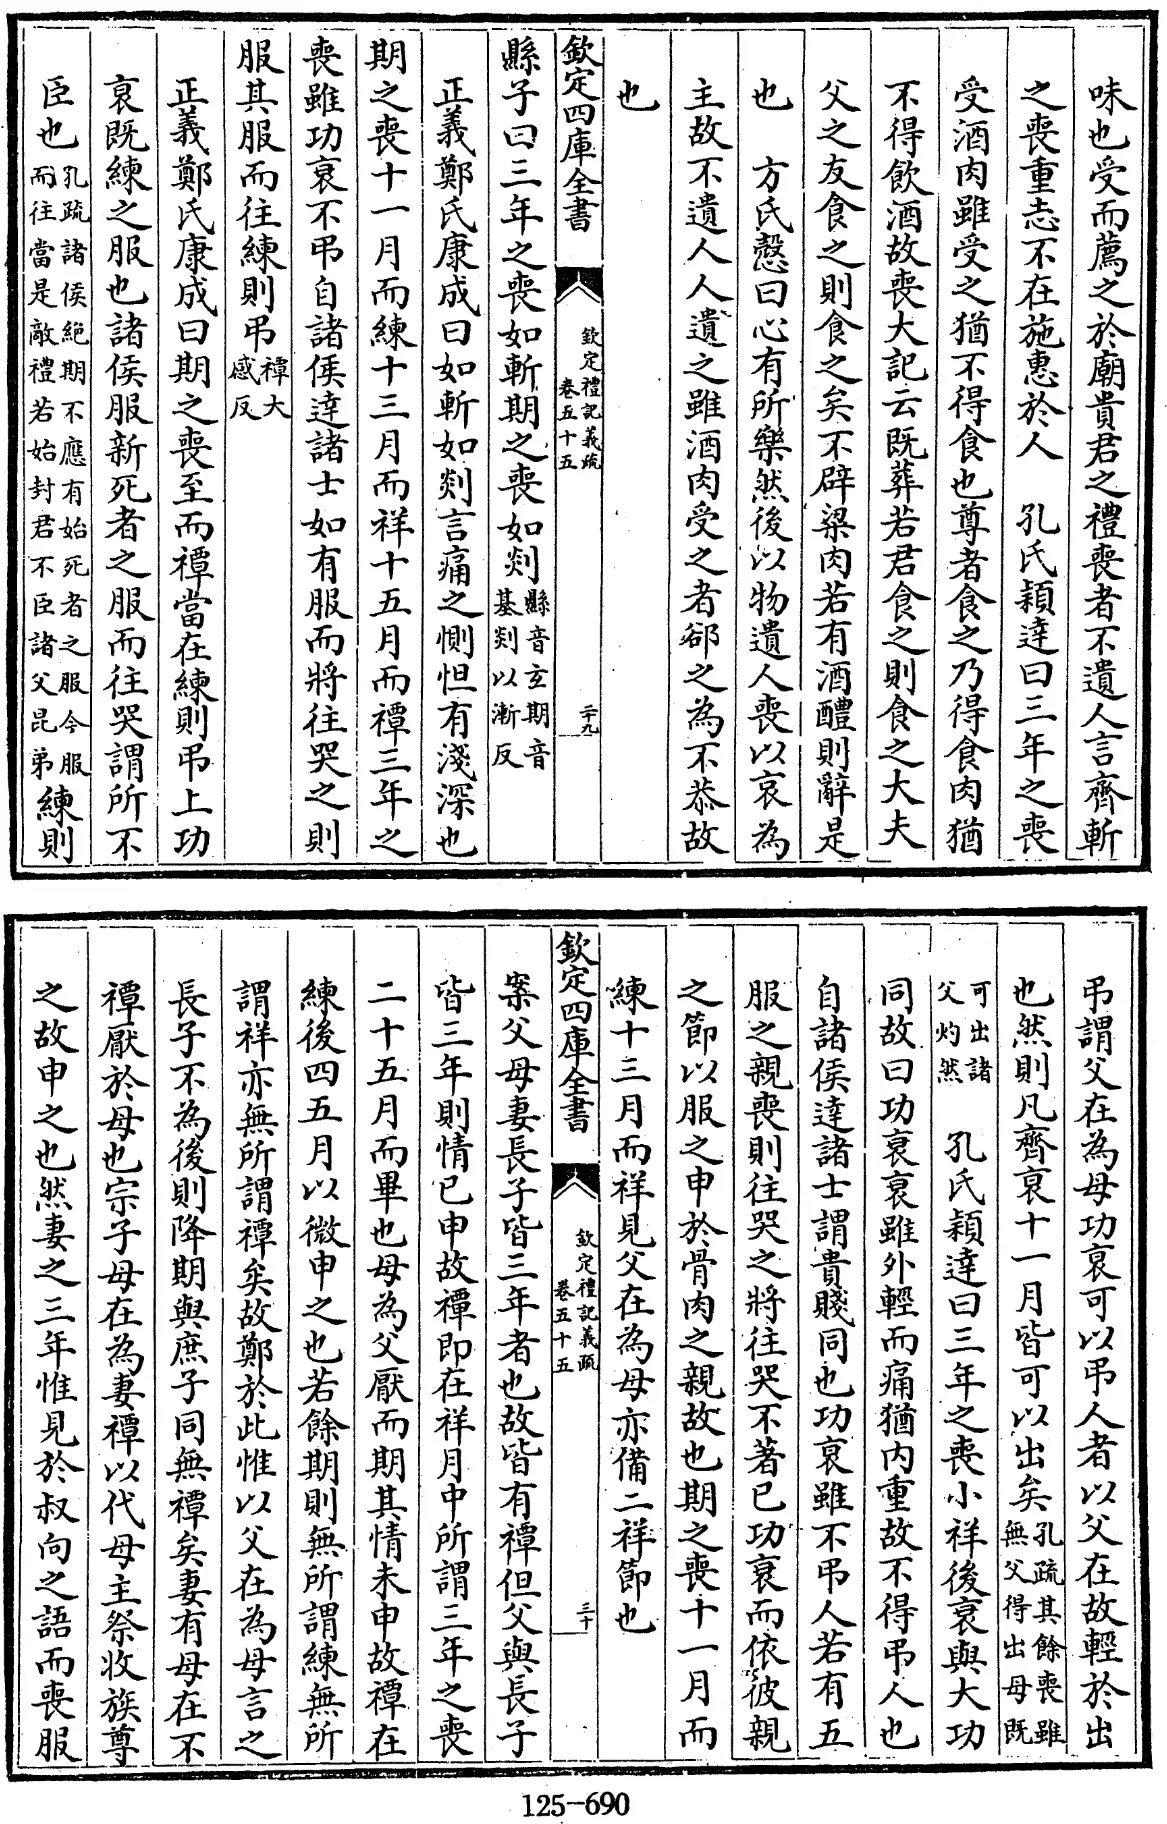 味也受而薦之於廟貴君之禮喪者不遺人言齊斬
之喪重志不在施惠於人　孔氏穎達曰三年之喪
受酒肉雖受之猶不得食也尊者食之乃得食肉猶
不得飲酒故喪大記云既葬若君食之則食之大夫
父之友食之則食之矣不辟粱肉若有酒醴則辭是
也　方氏慤曰心有所樂然後以物遺人喪以哀為
主故不遺人人遺之雖酒肉受之者郤之為不恭故
也
欽定四庫全書
欽定禮記義疏
卷五十五
二十九
縣子曰三年之喪如斬期之喪如剡縣音玄期音
基剡以漸反
正義鄭氏康成曰如斬如剡言痛之惻怛有淺深也
期之喪十一月而練十三月而祥十五月而禫三年之
喪雖功衰不弔自諸侯達諸士如有服而將往哭之則
服其服而往練則弔禫大
感反
正義鄭氏康成曰期之喪至而禫當在練則弔上功
衰既練之服也諸侯服新死者之服而往哭謂所不
臣也孔疏諸侯絶期不應有始死者之服今服
而往當是敵禮若始封君不臣諸父昆弟練則
弔謂父在為母功衰可以弔人者以父在故輕於出
也然則凡齊衰十一月皆可以出矣孔疏其餘喪雖
無父得出母既
可出諸
父灼然　孔氏穎達曰三年之喪小祥後衰與大功
同故曰功衰衰雖外輕而痛猶内重故不得弔人也
自諸侯達諸士謂貴賤同也功衰雖不弔人若有五
服之親喪則往哭之將往哭不著已功衰而依彼親
之節以服之申於骨肉之親故也期之喪十一月而
練十三月而祥見父在為母亦備二祥節也
欽定四庫全書
欽定禮記義疏
卷五十五
三十
案父母妻長子皆三年者也故皆有禫但父與長子
皆三年則情已申故禫即在祥月中所謂三年之喪
二十五月而畢也母為父厭而期其情未申故禫在
練後四五月以微申之也若餘期則無所謂練無所
謂祥亦無所謂禫矣故鄭於此惟以父在為母言之
長子不為後則降期與庶子同無禫矣妻有母在不
禫厭於母也宗子母在為妻禫以代母主祭收族尊
之故申之也然妻之三年惟見於叔向之語而喪服
125-690